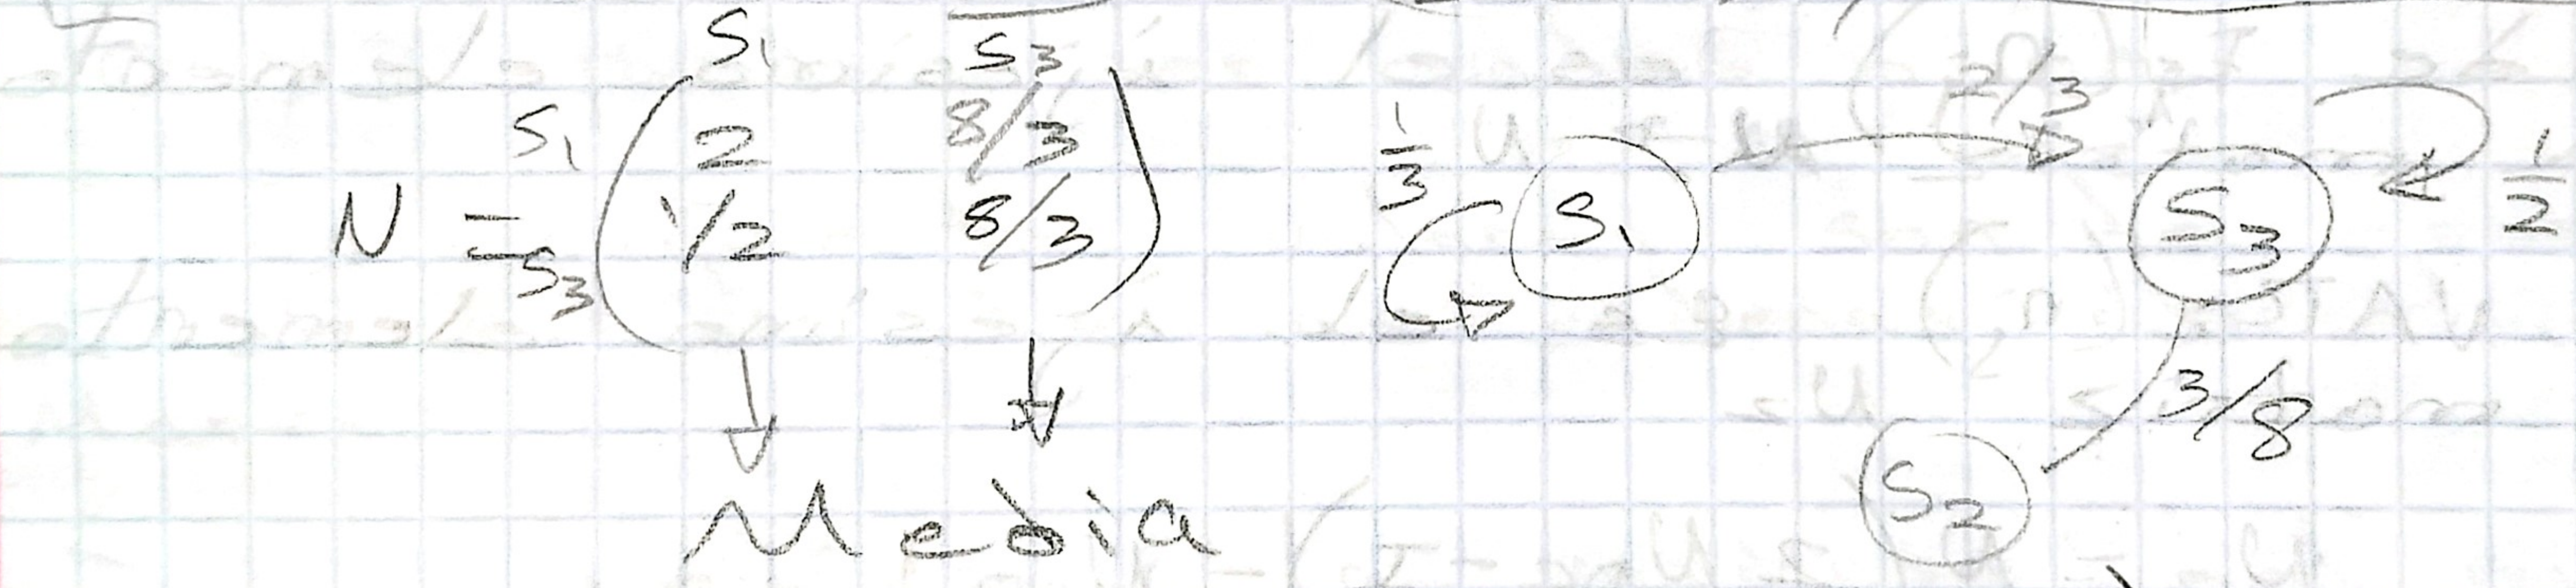 S₁ S₃
S₁ 2 8/3
N = S₃ 1/2 8/3
Media
1/3 S₁ 2/3 S₃ 1/2
3/8
S₂